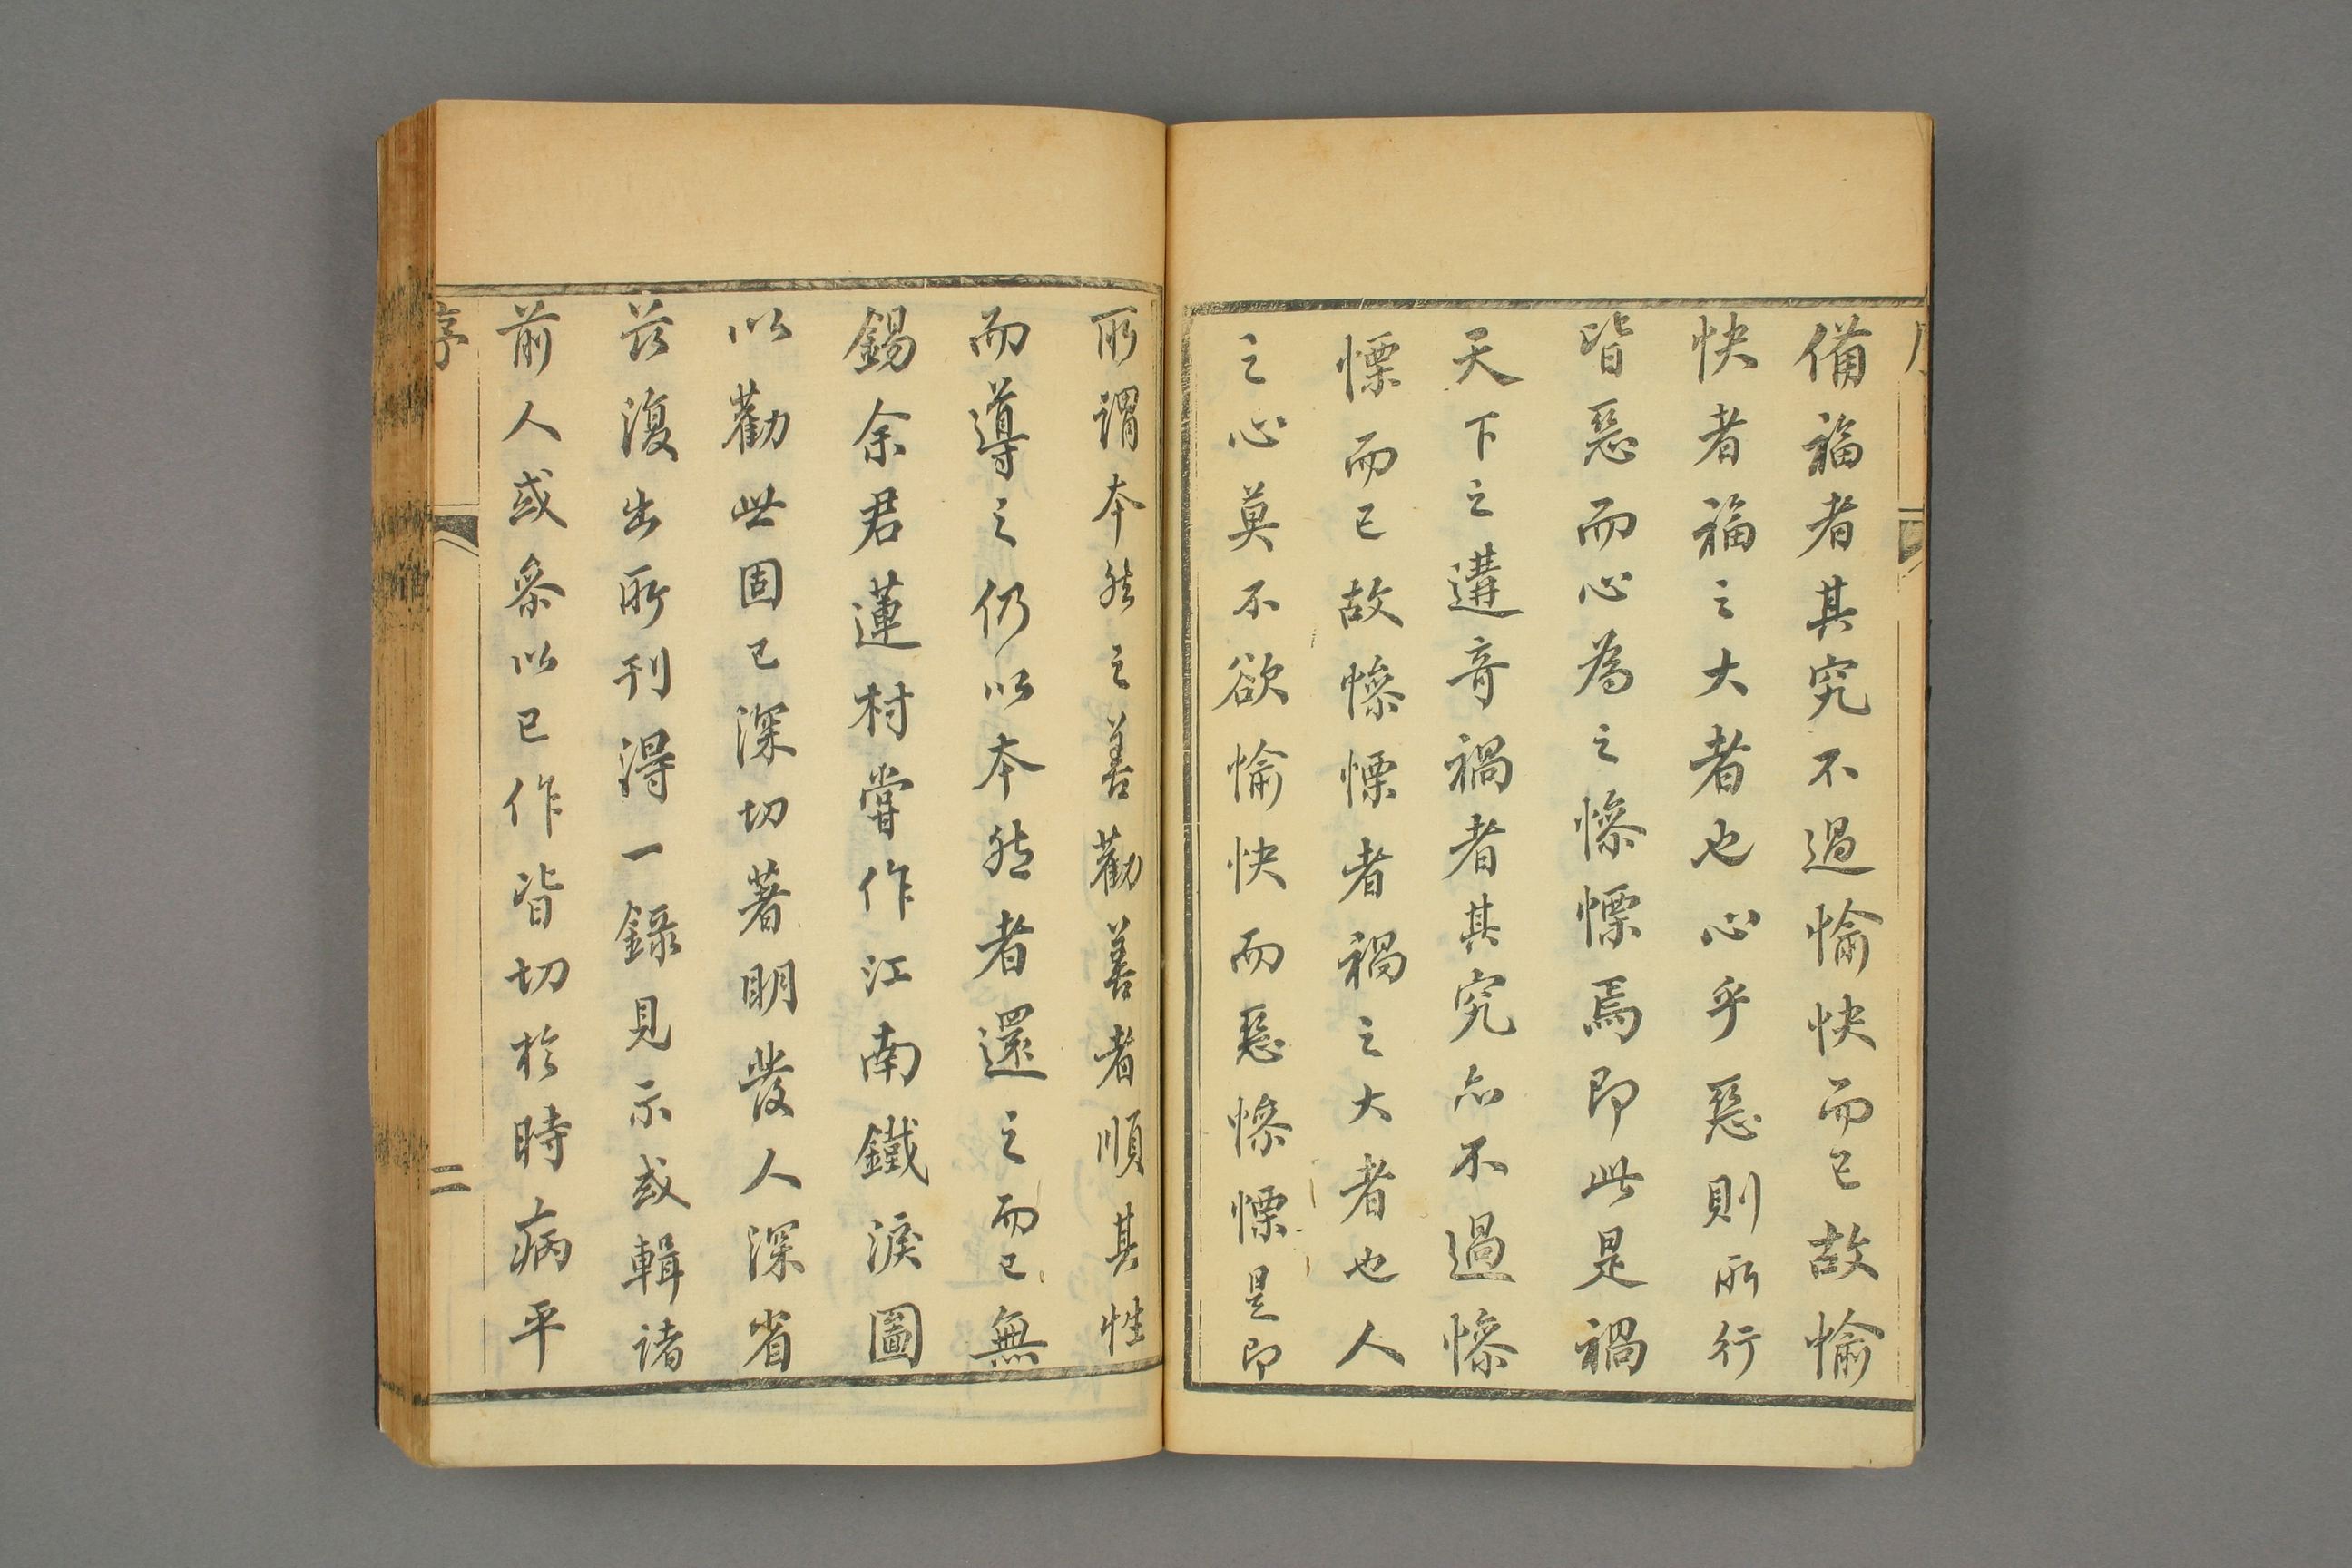 備福者其究不過愉快而已故愉
快者福之大者也心乎惡則所行
皆惡而心為之慘慄焉即此是禍
天下之遘奇禍者其究亦不過慘
慄而已故慘慄者禍之大者也人
之心莫不欲愉快而惡慘慄是即
所謂本然之善勸善者順其性
而導之仍以本然者還之而已無
錫余君蓮村嘗作江南鐵淚圖
以勸世固已深切著明發人深省
茲復出所刊得一錄見示或輯諸
前人或參以己作皆切於時病平
序
二